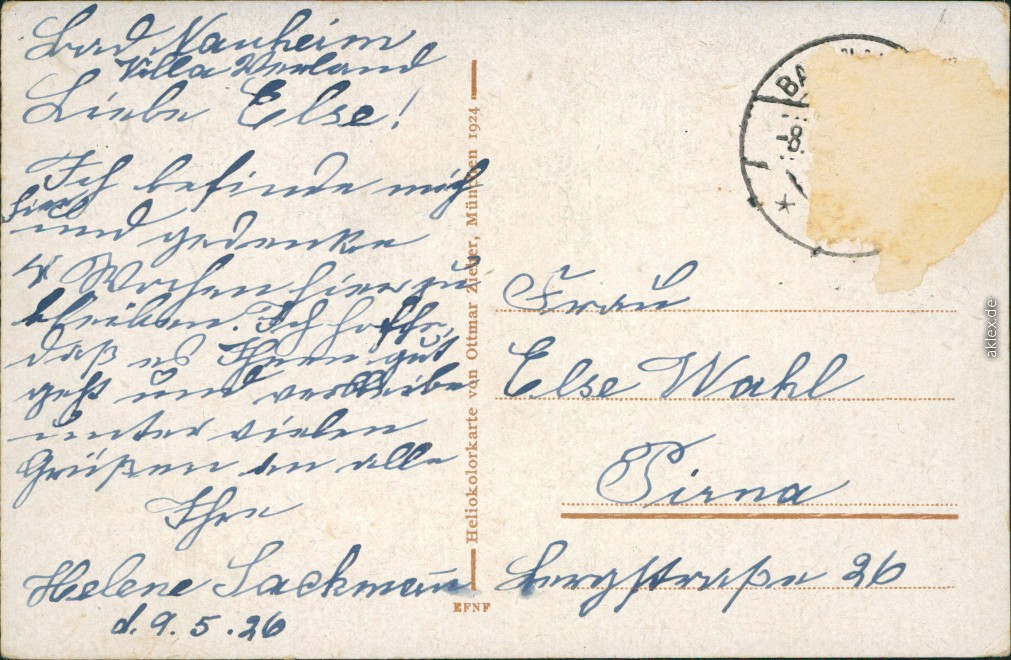 Bad Nauheim
Villa Verland
Liebe Else!
Ich befinde mich
hier
und gedenke
4 Wochen hier zu
bleiben. Ich hoffe,
daß es Ihnen gut
geht und verbleibe
unter vielen
Grüßen an alle
Ihre
Helene Sackmann
d. 9.5.26
Heliokolorkarte von Ottmar Zieher, München 1924
EFNF
BA
-8.
Frau
Else Wahl
Pirna
Bergstraße 26
aklex.de